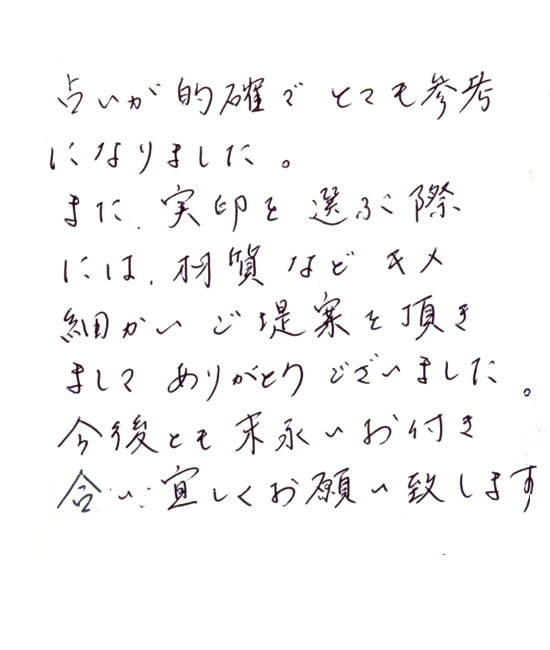 占いが的確で とても参考
になりました。
また、実印を 選ぶ際
には、材質など キメ
細かい ご堤案を頂き
まして ありがとう ございました。
今後とも 末永いお付き
合い 宜しくお願い致します